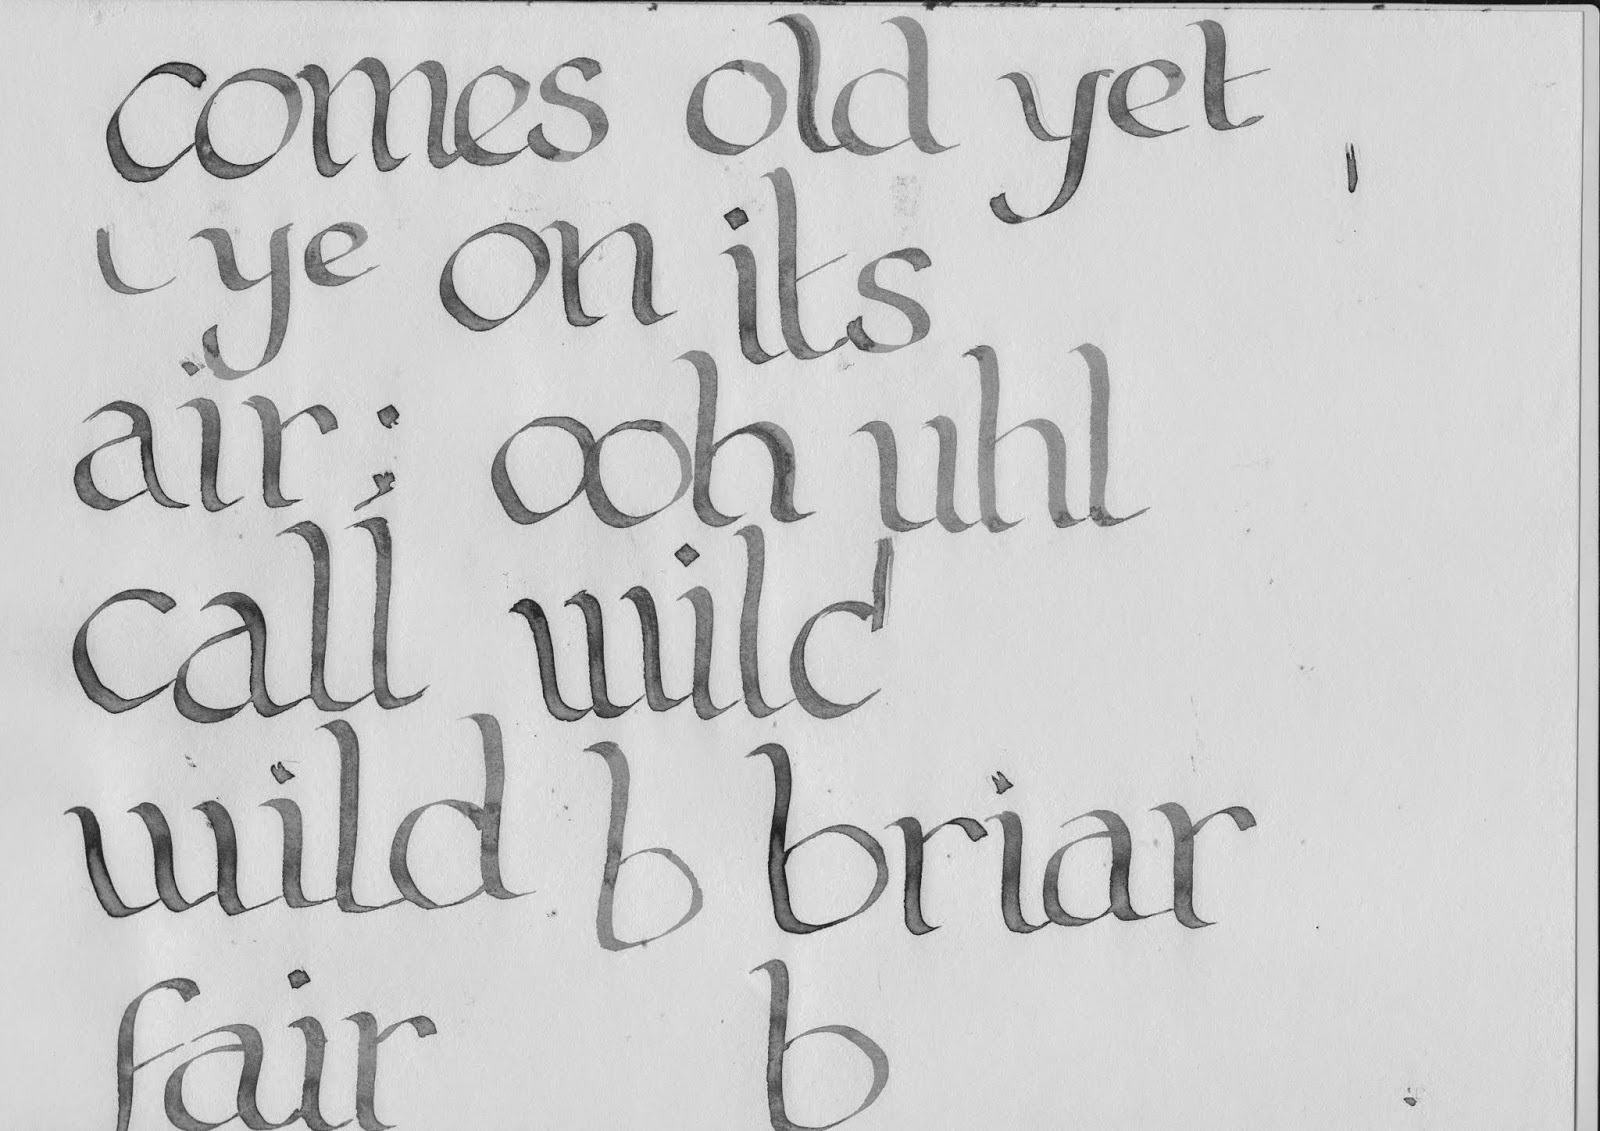 comes old yet
ye on its
air; ooh uhl
call wild
wild b briar
fair b